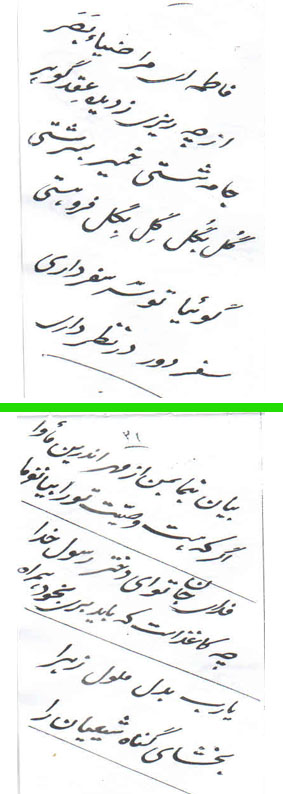 فاطمه ای مرا ضیاء بصر
از چه ریزی ز دیده عقد گوهر
جامه شستی خمیر بسرشتی
گل بگل گل بگل فرو هشتی
گوئیا تو سر سفر داری
سفر دور در نظر داری
۳۱
بیان نما بمن از مهر اندرین مأوا
اگر که هست وصیت تو را بیان فرما
فدای جان تو ای دختر رسول خدا
چه کاغذ است که باید بری بخود همراه
یارب بدل ملول زهرا
بخشای گناه شیعیان را